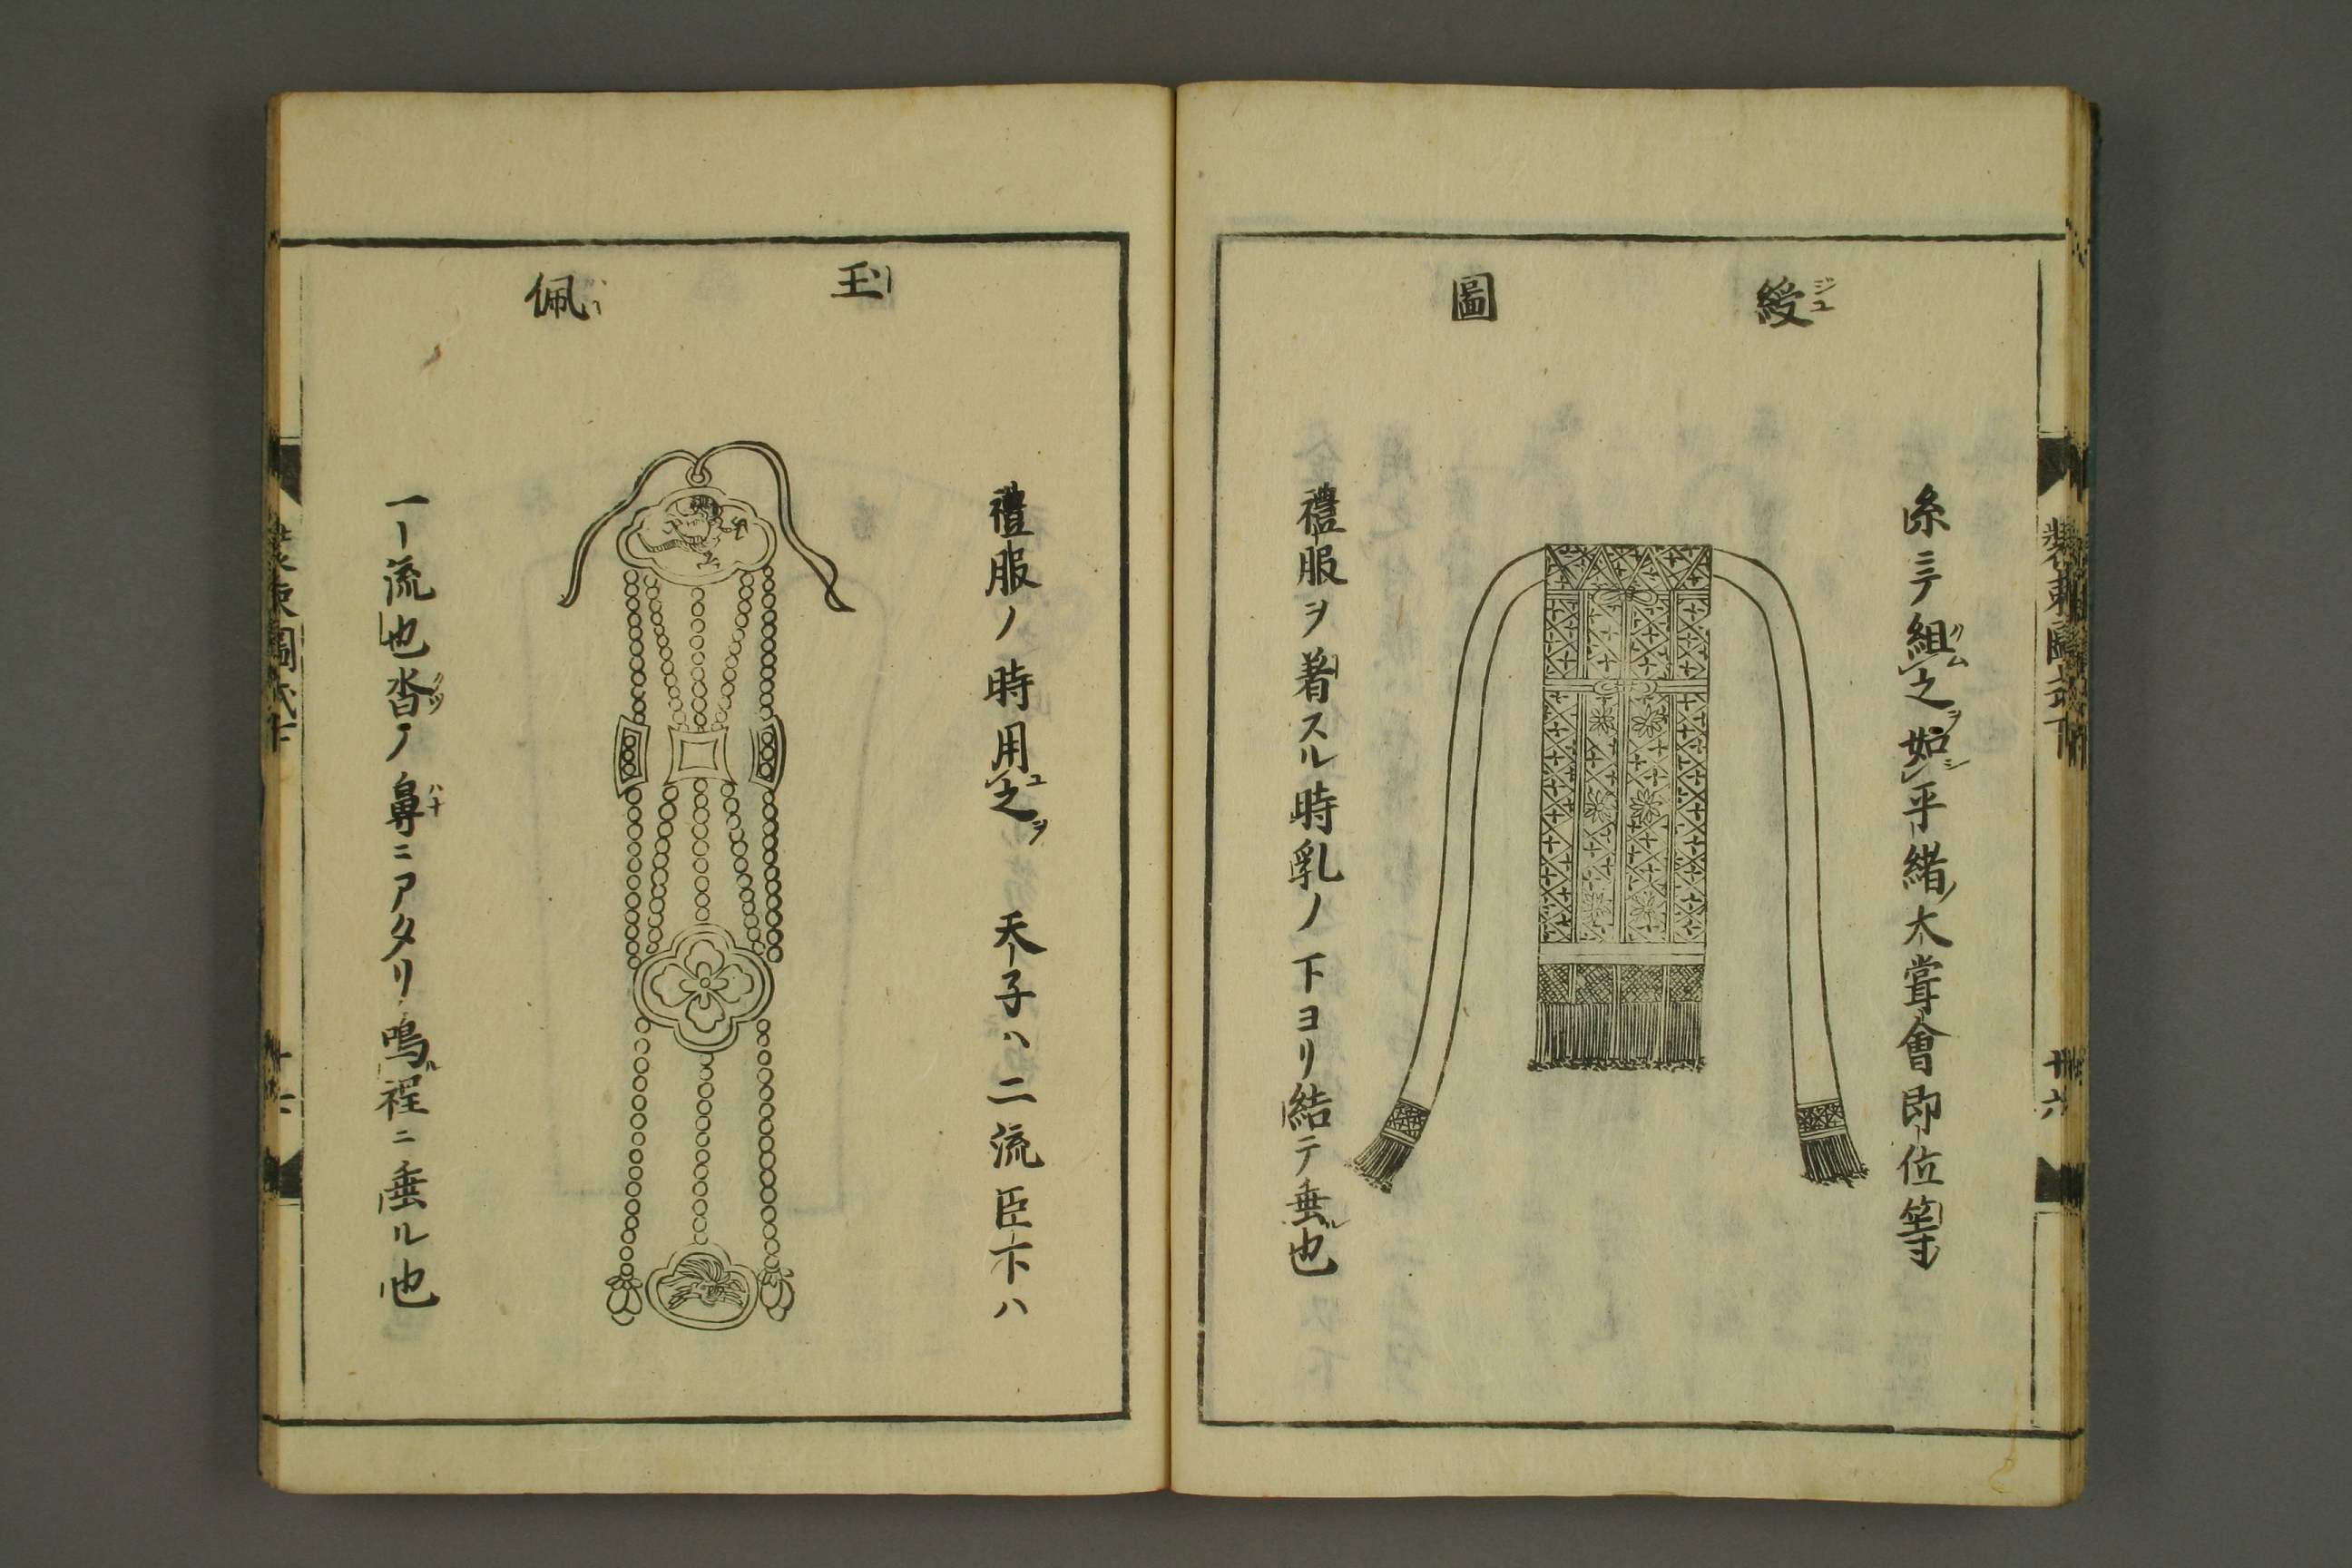 綬ジユ 圖
糸ニテ組クム之ヲ如シ平緒大嘗會即位等
禮服ヲ著スル時乳ノ下ヨリ結テ垂ル也
裝束圖式下 卅六
玉 佩
禮服ノ時用ユ之ヲ 天子ハ二流臣下ハ
一流也沓クツノ鼻ハナニアタリ鳴ル程ニ垂ル也